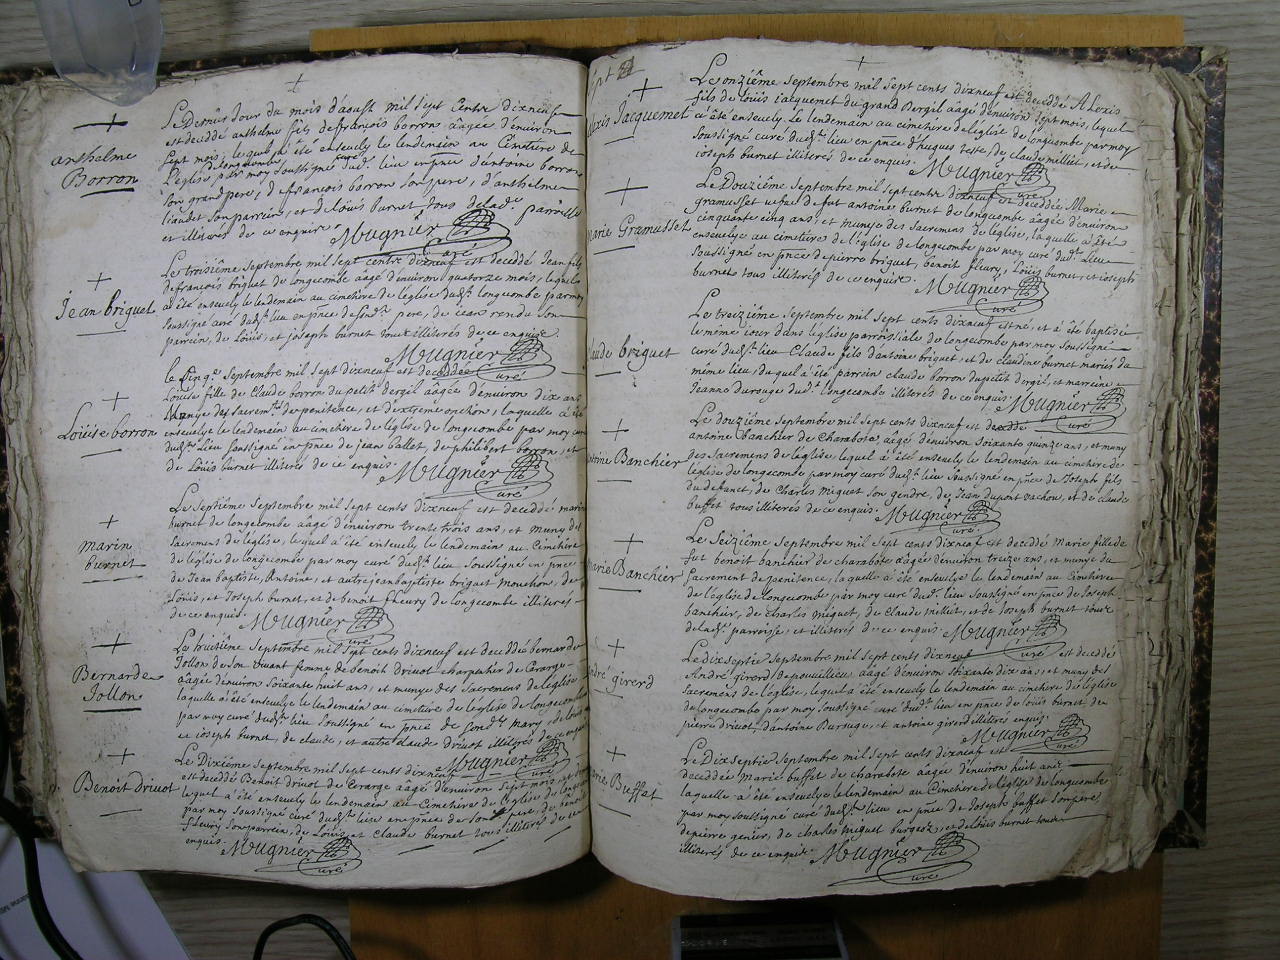 anthelme
Borron
Le Dernier Jour du mois d'aoust mil sept Cents dixneuf
est decédé anthelme fils de françois borron aâgée d'environ
sept mois, lequel a été ensevely le lendemain au Cimetiere de
l'église de longecombe par moy soussigné curé dud. lieu en pnce d'antoine borron
son grand pere, de françois borron son pere, d'anthelme
son parrein, et de loüis burnet tous de lad. paroisse
et illiterés de ce enquis. Mugnier
curé
Jean briguet
Le troisième septembre mil sept cents dixneuf est decédé Jean fils
de françois briguet de longecombe aâgé d'environ quatorze mois, lequel
a été ensevely le lendemain au cimetiere de l'eglise dudt. longecombe par moy
soussigné curé dudt. lieu en pnce de sond. pere, de jean rendu son
parrein, de Loüis, et joseph burnet tous illiterés de ce enquis.
Mugnier
curé
Loüise borron
le Cinqe. septembre mil sept dixneuf est decedée
Loüise fille de Claude borron du petit dergil aâgée d'environ dix ans
Munye des sacremts. de penitence, et d'extreme onction, laquelle a été
ensevelye le lendemain au cimetiere de l'eglise de longecombe par moy curé
dudt. lieu soussigné en pnce de jean ballet, de philibert borron, et
de Loüis burnet illiterés de ce enquis. Mugnier
curé
marin
burnet
Le septième septembre mil sept cents dixneuf est decédé marin
burnet de longecombe aâgé d'environ trente trois ans, et muny des
sacremens de l'eglise, lequel a été ensevely le lendemain au Cimetiere
de l'église de longecombe par moy curé dudt. lieu soussigné en pnce
de Jean baptiste, Antoine, et autre jean baptiste briguet mouchon, de
Loüis, et Joseph burnet, et de benoit fleury de longecombe illiterés
de ce enquis. Mugnier
curé
Bernarde
Jollon
Le huitième septembre mil sept cents dixneuf est decédée bernarde
Jollon de son vivant femme de benoit drivot charpentier de Cerarge
aâgée d'environ soixante huit ans, et munye des Sacremens de l'eglise
laquelle a été ensevelye le lendemain au cimetiere de l'eglise de longecombe
par moy curé dudt. lieu soussigné en pnce de sond. mary, de loüis
et joseph burnet, de claude, et autre claude drivot illiterés de ce enquis
Mugnier
curé
Benoit drivot
Le Dixième septembre mil sept cents dixneuf
est decédé Benoit drivot de Cerarge aâgé d'environ sept mois
lequel a été ensevely le lendemain au Cimetiere de l'église de longecombe
par moy soussigné curé dudt. lieu en pnce de son pere, de benoit
fleury son parrein, de Loüis, et Claude burnet tous illiterés de ce
enquis. Mugnier
curé
Jacquemet
Le onzième septembre mil sept cents dixneuf est decédé Alexis
fils de loüis Jacquemet du grand Dergil aâgé d'environ sept mois, lequel
a été ensevely le lendemain au cimetiere de l'eglise de longecombe par moy
soussigné curé dudt. lieu en pnce d'hugues teste, de claude milliet, et de
joseph burnet illiterés de ce enquis. Mugnier
curé
Marie Gramusset
Le Douzième septembre mil sept cents dixneuf est decédée Marie
gramusset vefve de fut antoine burnet de longecombe aâgée d'environ
cinquante cinq ans, et munye des Sacremens de l'eglise, laquelle a été
ensevelye au cimetiere de l'église de longecombe par moy curé dudt. Lieu
soussigné en pnce de pierre briguet, benoit fleury, Loüis burnet, et joseph
burnet tous illiterés de ce enquis. Mugnier
curé
Claude briguet
Le treizième septembre mil sept cents dixneuf est né, et a été baptisé
le même jour dans l'église parroissiale de longecombe par moy soussigné
curé dudt. lieu Claude fils d'antoine briguet, et de claudine burnet mariés du
même lieu, duquel a été parrein claude borron du petit dergil, et marreine
Jeanne durouge dudt. longecombe illiterés de ce enquis. Mugnier
curé
Antoine Banchier
Le douzième septembre mil sept cents dixneuf est decédé
antoine banchier de Charabote, aâgé d'environ Soixante quinze ans, et muny
des Sacremens de l'eglise lequel a été ensevely le lendemain au cimetiere de
l'eglise de longecombe par moy curé dudt. lieu soussigné en pnce de Joseph fils
du defunct, de Charles miguet son gendre, de Jean dupont vachon, et de claude
buffet tous illiterés de ce enquis. Mugnier
curé
Marie Banchier
Le Seizième septembre mil sept cents dixneuf est decédé Marie fille de
fut benoit banchier de charabote aâgée d'environ treize ans, et munye du
sacrement de penitence, laquelle a été ensevelye le lendemain au Cimetiere
de l'église de longecombe par moy curé dudt. lieu soussigné en pnce de Joseph
banchier, de charles miguet, de claude milliet, et de Joseph burnet tous
de lad. parroisse, et illiterés de ce enquis. Mugnier
curé
André girerd
Le dixseptie septembre mil sept cents dixneuf est decédé
André girerd aâgé d'environ soixante dix ans, et muny des
sacremens de l'église, lequel a été ensevely le lendemain au cimetiere de l'église
de longecombe par moy soussigné curé dud. lieu en pnce de loüis burnet, de
pierre drivot, d'antoine et antoine girerd illiterés enquis.
Mugnier
curé
Marie Buffet
Le Dixseptie septembre mil sept cents dixneuf est
decédée Marie buffet de charabote aâgée d'environ huit ans
laquelle a été ensevelye le lendemain au Cimetiere de l'église de longecombe
par moy soussigné curé dudt. lieu en pnce de Joseph buffet son pere,
de pierre genier, de charles miguet et de loüis burnet tous
illiterés de ce enquis. Mugnier
curé